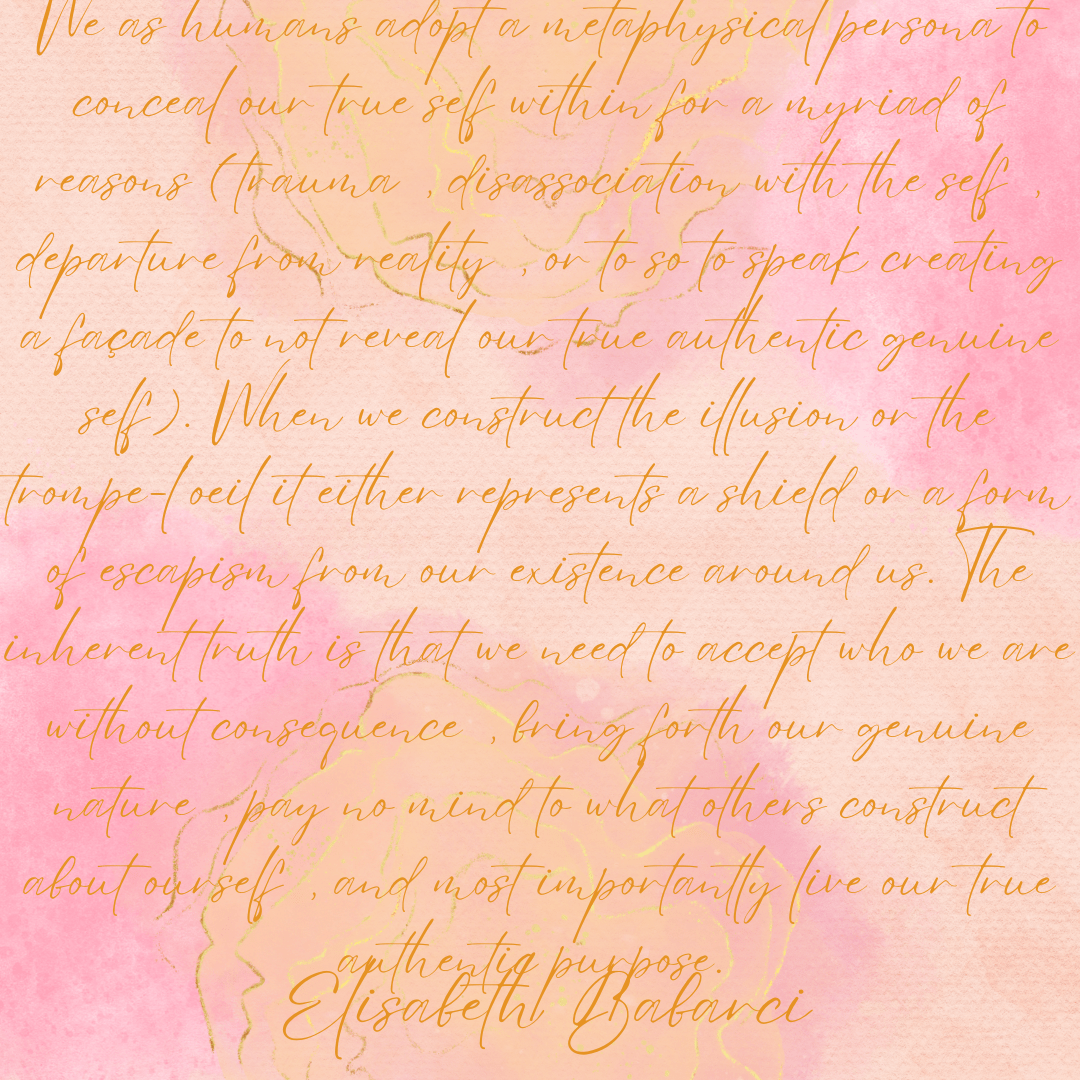 We as humans adopt a metaphysical persona to
conceal our true self within for a myriad of
reasons (trauma , disassociation with the self ,
departure from reality , or to so to speak creating
a façade to not reveal our true authentic genuine
self). When we construct the illusion or the
trompe-l oeil it either represents a shield or a form
of escapism from our existence around us. The
inherent truth is that we need to accept who we are
without consequence , bring forth our genuine
nature , pay no mind to what others construct
about ourself , and most importantly live our true
authentic purpose.
Elisabeth Babarci